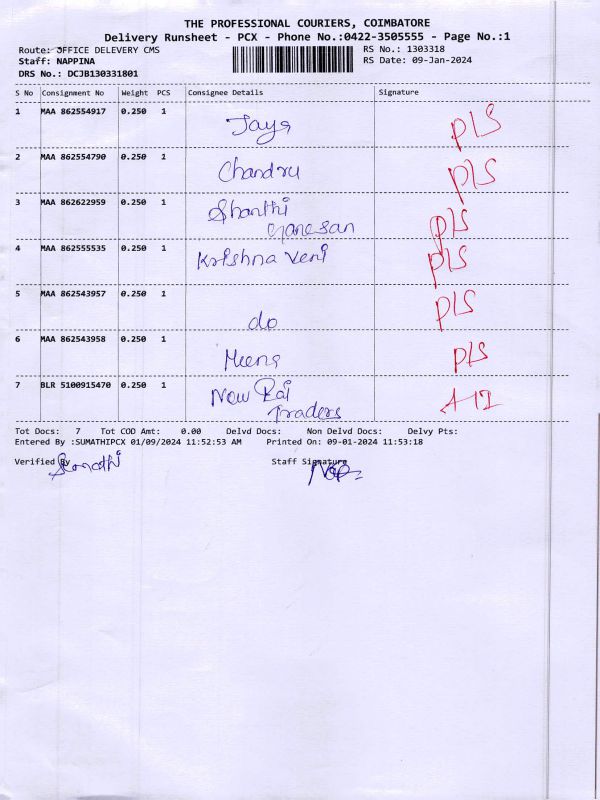 THE PROFESSIONAL COURIERS, COIMBATORE
Delivery Runsheet - PCX - Phone No.:0422-3505555 - Page No.:1
Route: OFFICE DELEVERY CMS RS No.: 1303318
Staff: NAPPINA RS Date: 09-Jan-2024
DRS No.: DCJB130331801
S No Consignment No Weight PCS Consignee Details Signature
1 MAA 862554917 0.250 1 Jaya PLS
2 MAA 862554790 0.250 1 Chandru PLS
3 MAA 862622959 0.250 1 Shanthi PLS
Ganesan
4 MAA 862555535 0.250 1 Krishna Veni PLS
5 MAA 862543957 0.250 1 do PLS
6 MAA 862543958 0.250 1 Meena PLS
7 BLR 5100915470 0.250 1 New Rai
Traders
Tot Docs: 7 Tot COD Amt: 0.00 Delvd Docs: Non Delvd Docs: Delvy Pts:
Entered By :SUMATHIPCX 01/09/2024 11:52:53 AM Printed On: 09-01-2024 11:53:18
Verified By Staff Signature